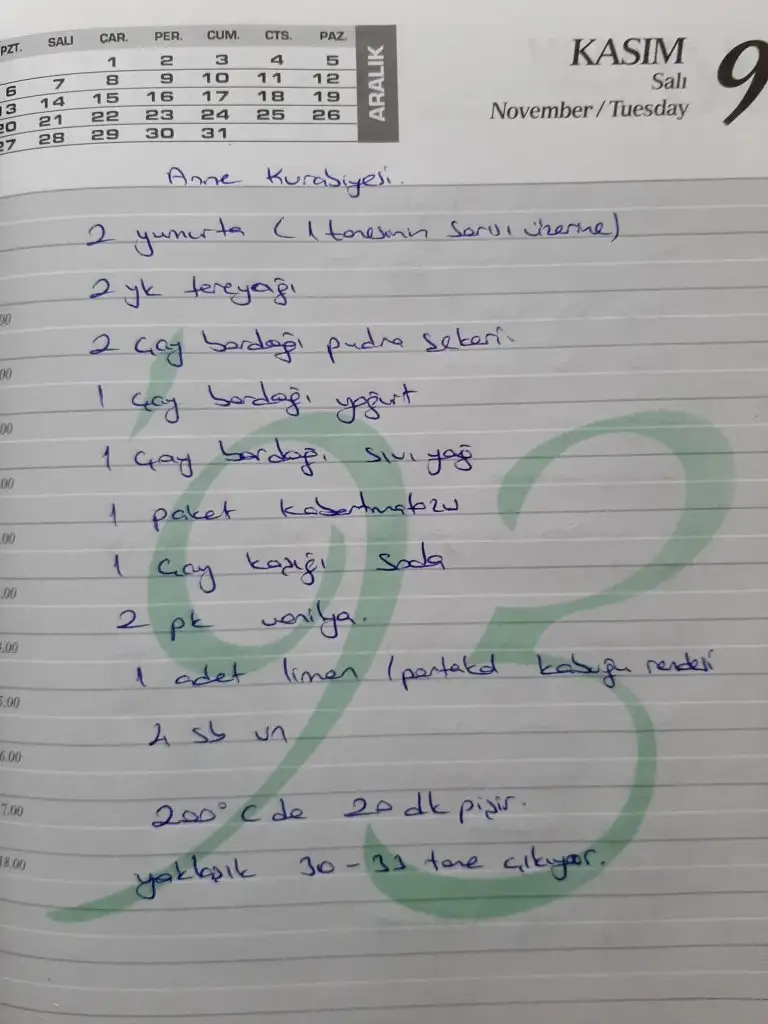 PZT. SALI ÇAR. PER. CUM. CTS. PAZ.
1 2 3 4 5
6 7 8 9 10 11 12
13 14 15 16 17 18 19
20 21 22 23 24 25 26
27 28 29 30 31
ARALIK
KASIM
Salı
November / Tuesday
9
Anne Kurabiyesi.
2 yumurta ( 1 tanesinin sarısı üzerine)
2 yk tereyağı
2 çay bardağı pudra şekeri.
1 çay bardağı yoğurt
1 çay bardağı sıvı yağ
1 paket kabartmatozu
1 çay kaşığı soda
2 pk vanilya.
1 adet limon / portakal kabuğu rendesi
4 sb un
200° C de 20 dk pişir.
yaklaşık 30 - 33 tane çıkıyor.
93
6.00
7.00
18.00